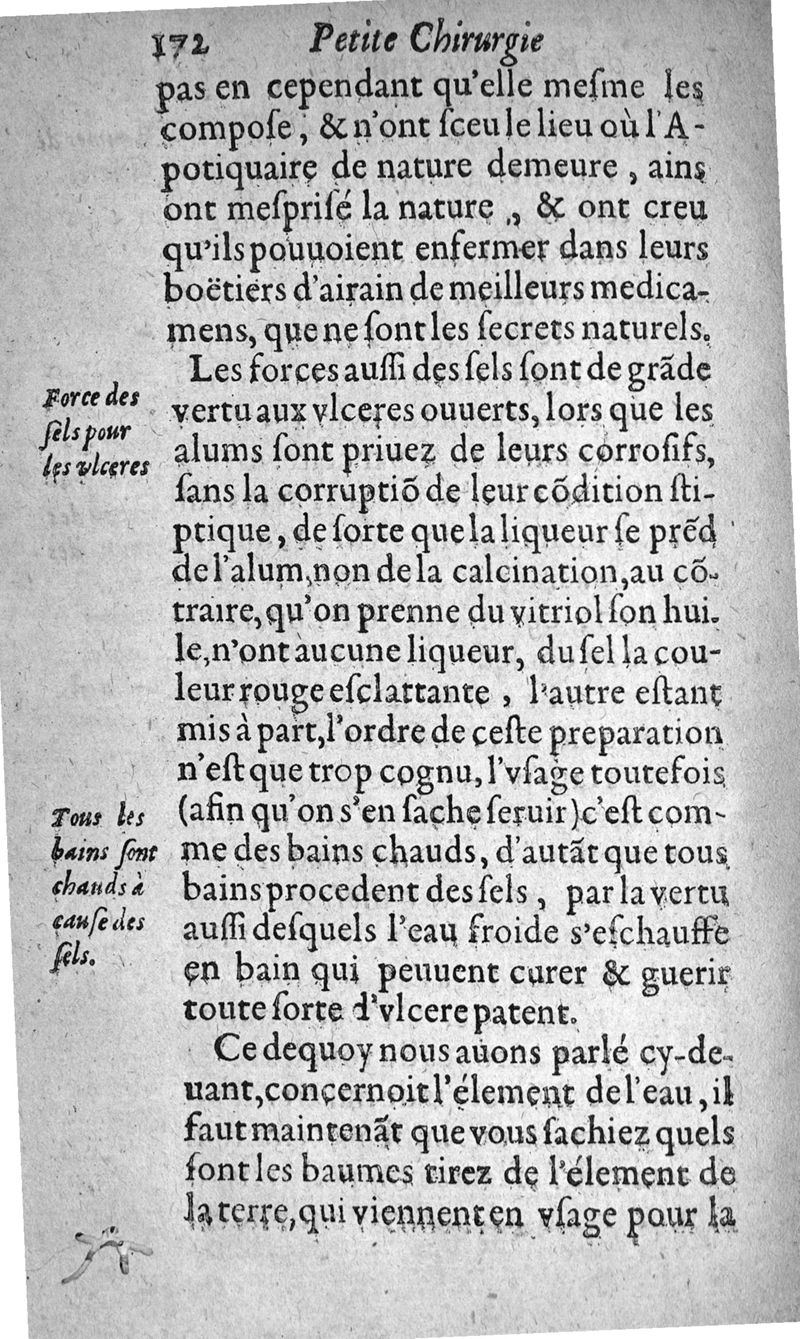 172 Petite Chirurgie
pas en cependant qu'elle meſme les
compoſe, & n'ont ſceu le lieu où l'A-
potiquaire de nature demeure, ains
ont meſpriſé la nature, & ont creu
qu'ils pouuoient enfermer dans leurs
boëtiers d'airain de meilleurs medica-
mens, que ne ſont les ſecrets naturels.
Les forces auſſi des ſels ſont de grãde
vertu aux vlceres ouuerts, lors que les
alums ſont priuez de leurs corroſifs,
ſans la corruptiõ de leur cõdition ſti-
ptique, de ſorte que la liqueur ſe prẽd
de l'alum, non de la calcination, au cõ-
traire, qu'on prenne du vitriol ſon hui-
le, n'ont aucune liqueur, du ſel la cou-
leur rouge eſclattante, l'autre eſtant
mis à part, l'ordre de ceſte preparation
n'eſt que trop cognu, l'vſage toutefois
(afin qu'on s'en ſache ſeruir) c'eſt com-
me des bains chauds, d'autãt que tous
bains procedent des ſels, par la vertu
auſſi deſquels l'eau froide s'eſchauffe
en bain qui peuuent curer & guerir
toute ſorte d'vlcere patent.
Ce dequoy nous auons parlé cy-de-
uant, concernoit l'élement de l'eau, il
faut maintenãt que vous ſachiez quels
ſont les baumes tirez de l'élement de
la terre, qui viennent en vſage pour la
Force des
ſels pour
les vlceres
Tous les
bains ſont
chauds à
cauſe des
ſels.